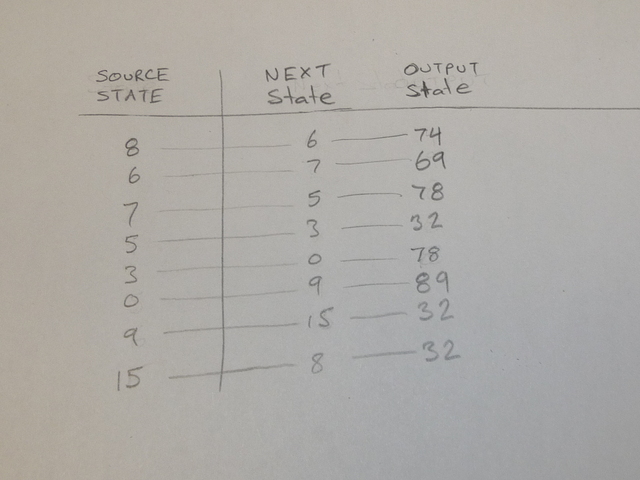 SOURCE STATE NEXT State OUTPUT State
8 6 74
6 7 69
7 5 78
5 3 32
3 0 78
0 9 89
9 15 32
15 8 32